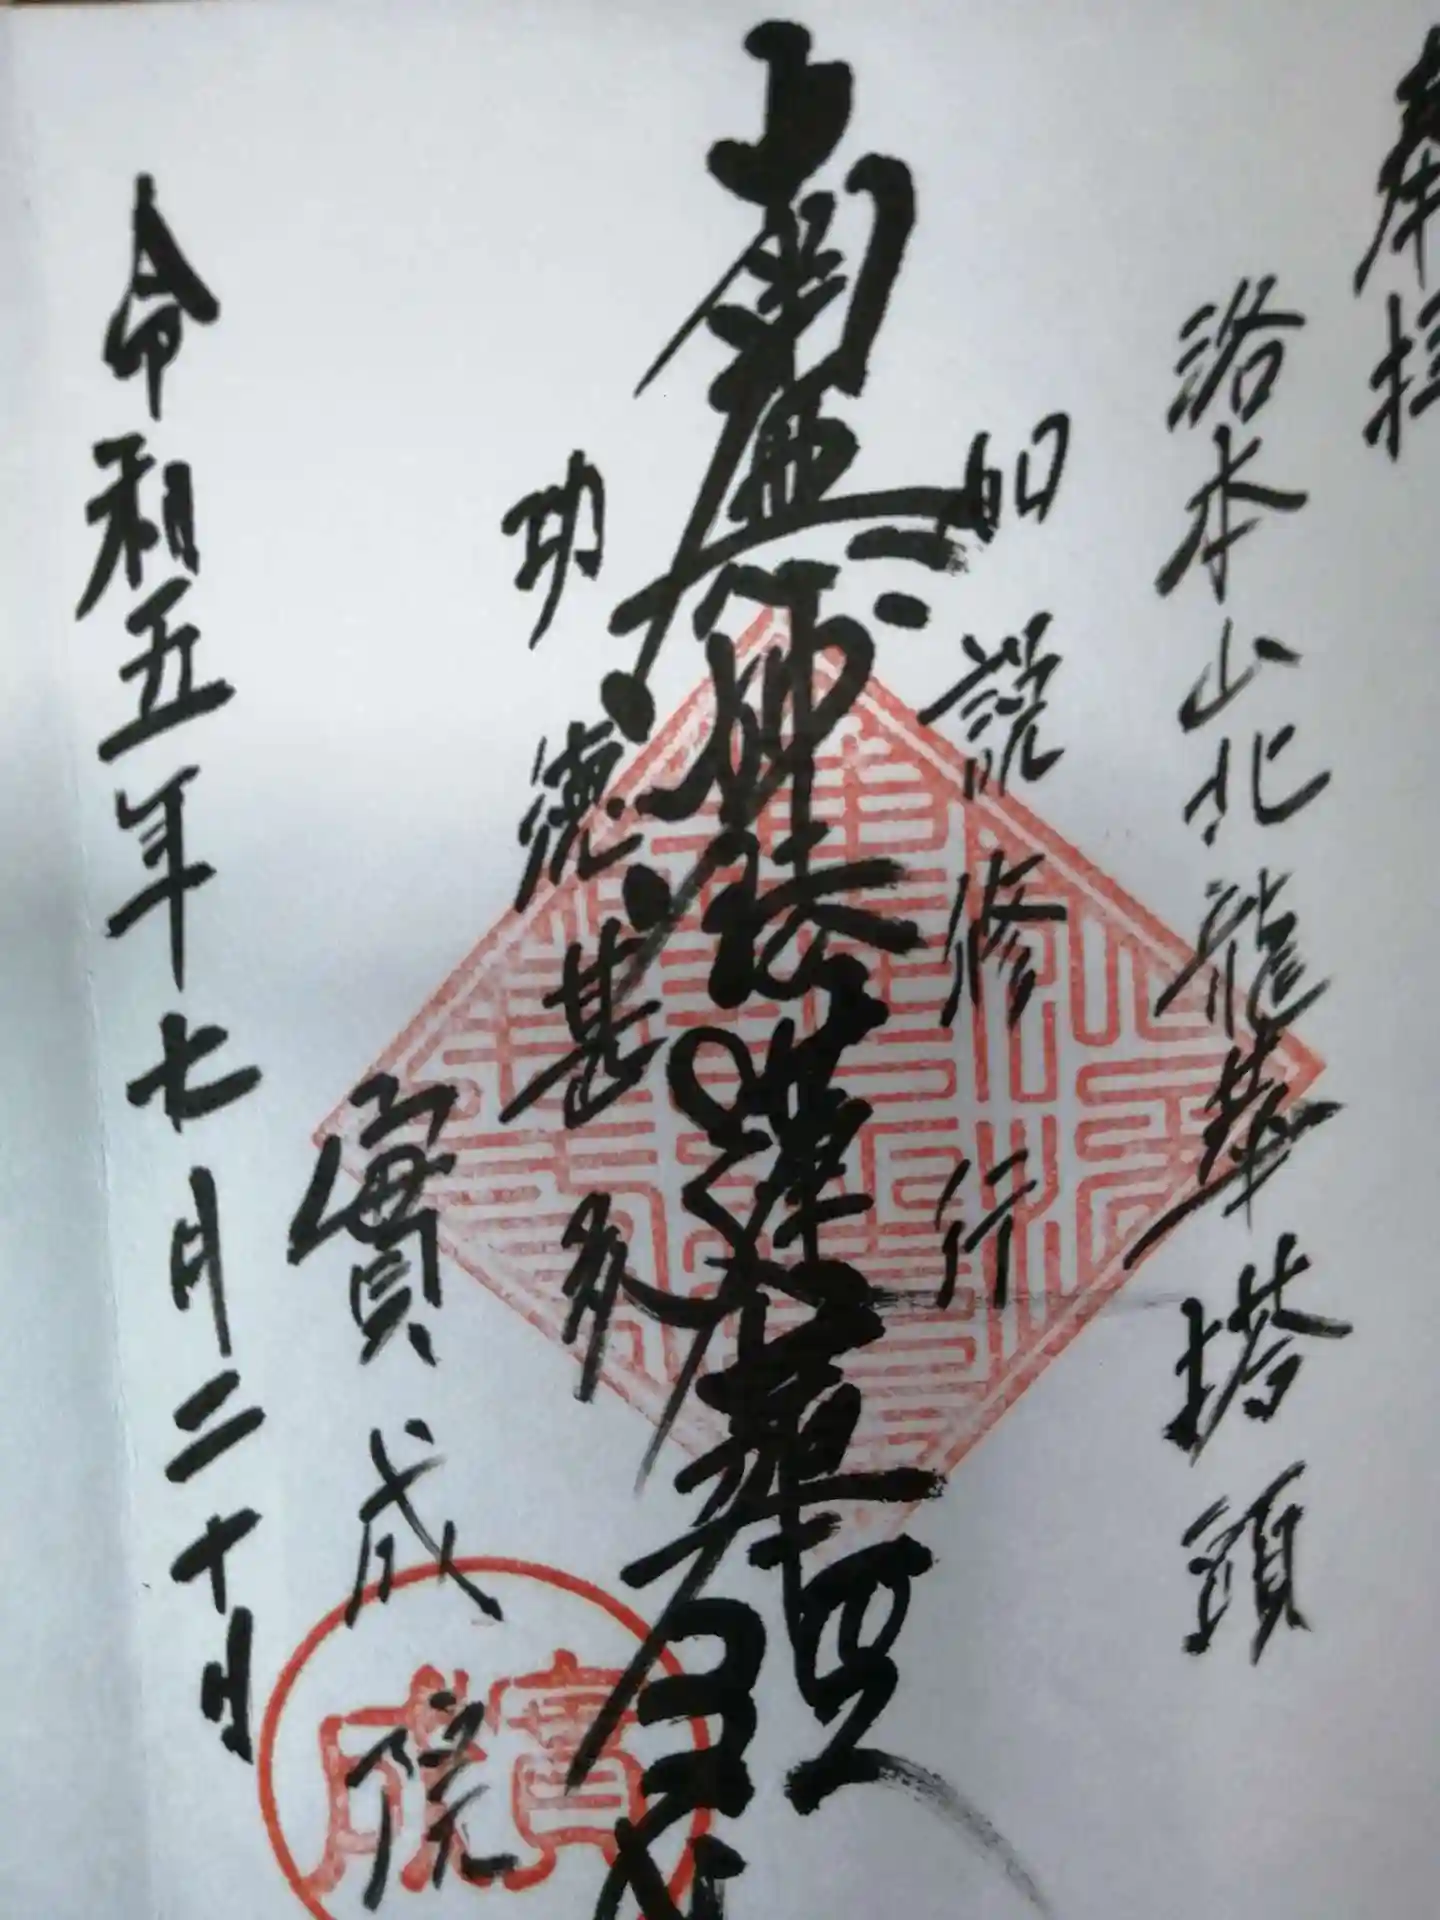 奉拝
洛本山北龍華塔頭
如説修行
南無妙法蓮華經
功德甚多
實成院
令和五年七月二十日
實成